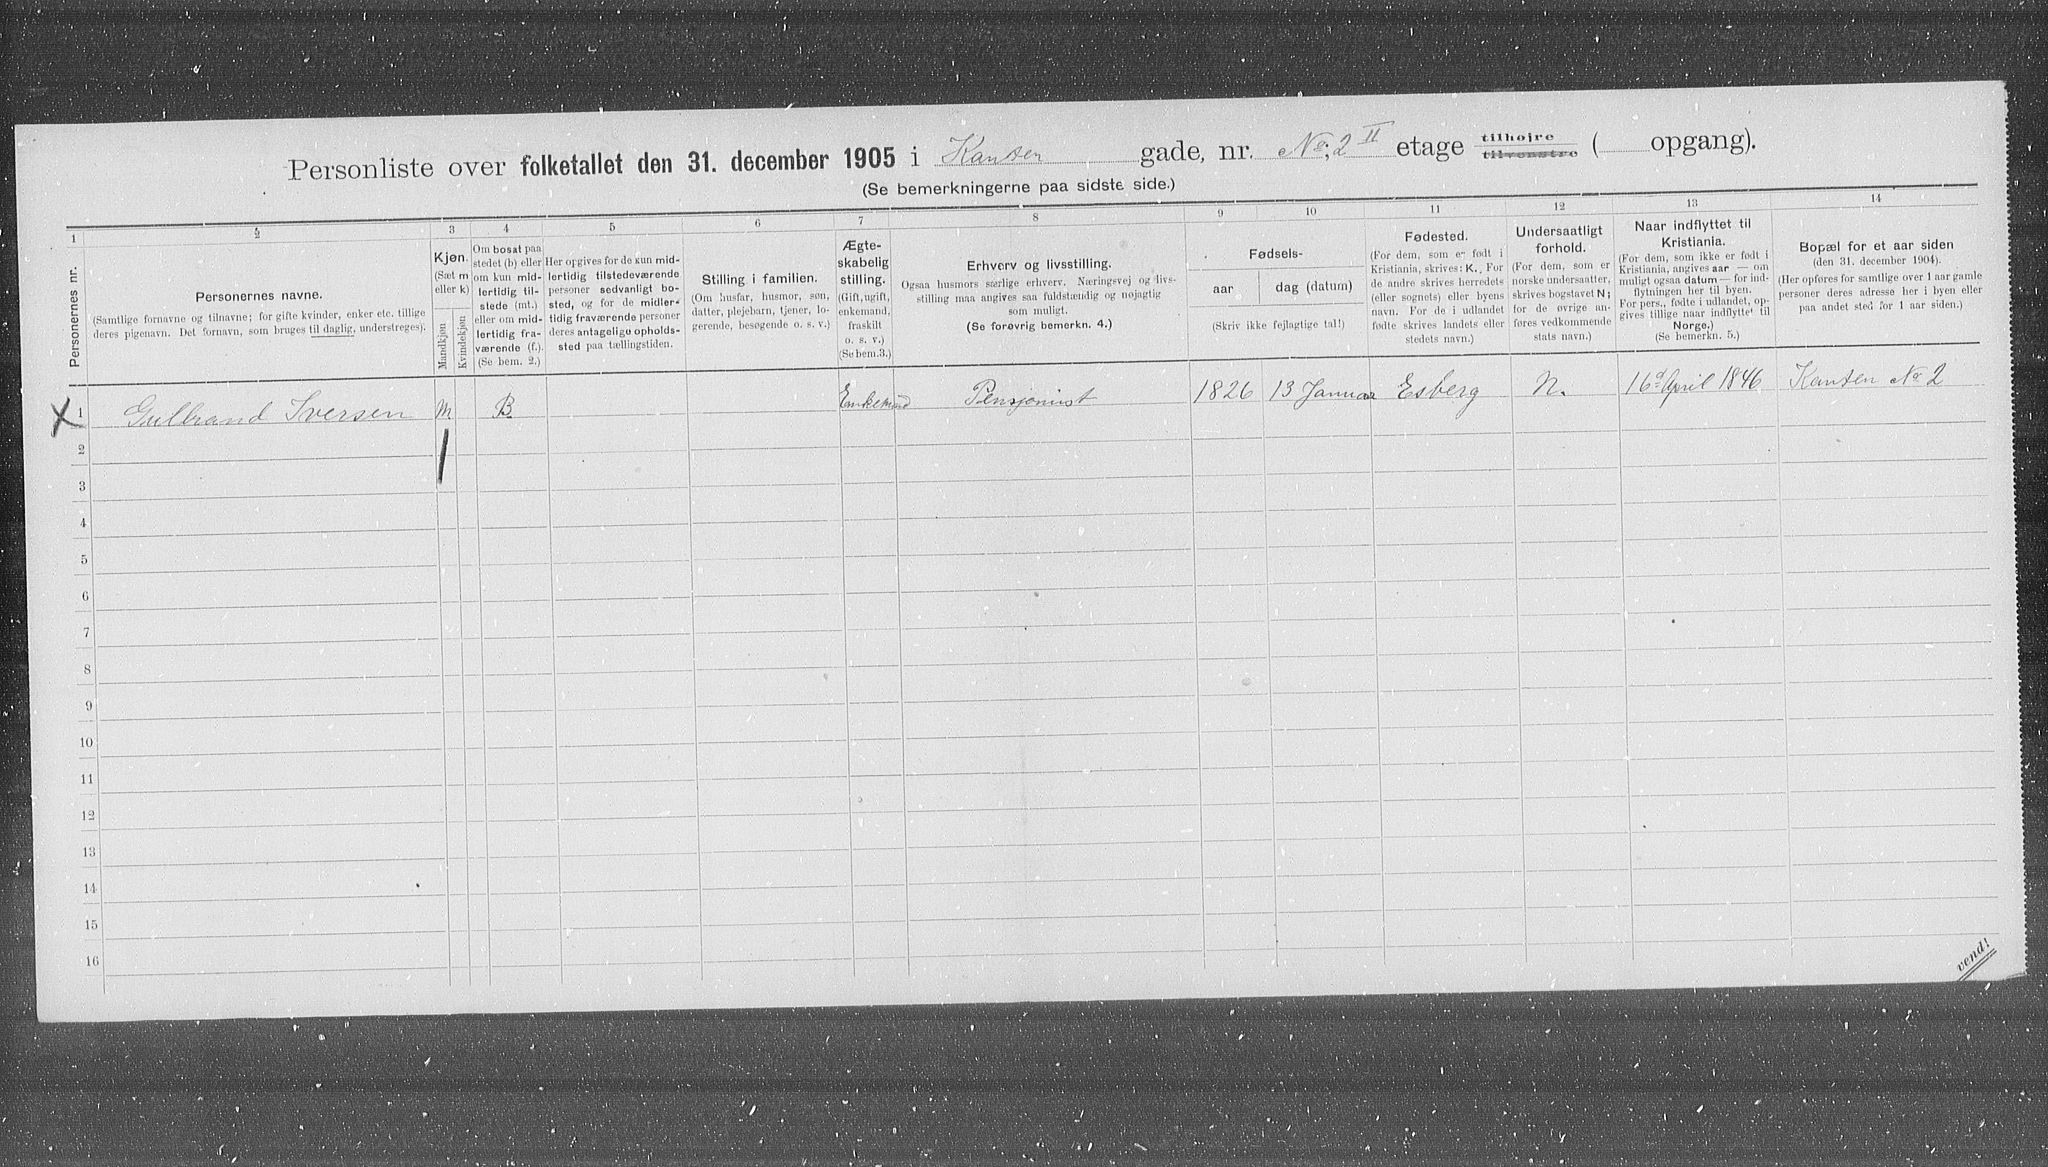 Personliste over folketallet den 31. december 1905 i Kansen gade, nr. No; 2 II etage tilhøjre tilvenstre ( opgang).
(Se bemerkningerne paa sidste side.)
1 2 3 4 5 6 7 8 9 10 11 12 13 14
Personernes nr.
Personernes navne.
(Samtlige fornavne og tilnavne; for gifte kvinder, enker etc. tillige
deres pigenavn. Det fornavn, som bruges til daglig, understreges).
Kjøn.
(Sæt m
eller k)
Mandkjøn
Kvindekjøn
Om bosat paa
stedet (b) eller
om kun mid-
lertidig til-
stede (mt.)
eller om mid-
lertidig fra-
værende (f.).
(Se bem. 2.)
Her opgives for de kun mid-
lertidig tilstedeværende
personer sedvanligt bo-
sted, og for de midler-
tidig fraværende personer
deres antagelige opholds-
sted paa tællingstiden.
Stilling i familien.
(Om husfar, husmor, søn,
datter, plejebarn, tjener, lo-
gerende, besøgende o. s. v.)
Ægte-
skabelig
stilling.
(Gift, ugift,
enkemand,
fraskilt
o. s. v.)
(Se bem. 3.)
Erhverv og livsstilling.
Ogsaa husmors særlige erhverv. Næringsvej og livs-
stilling maa angives saa fuldstændig og nøjagtig
som muligt.
(Se forøvrig bemerkn. 4.)
Fødsels-
aar
dag (datum)
(Skriv ikke fejlagtige tal!)
Fødested.
(For dem, som er født i
Kristiania, skrives: K. For
de andre skrives herredets
(eller sognets) eller byens
navn. For de i udlandet
fødte skrives landets eller
stedets navn.)
Undersaatligt
forhold.
(For dem, som er
norske undersaatter,
skrives bogstavet N;
for de øvrige an-
føres vedkommende
stats navn.)
Naar indflyttet til
Kristiania.
(For dem, som ikke er født i
Kristiania, angives aar — om
muligt ogsaa datum — for ind-
flytningen her til byen.
For pers., fødte i udlandet, op-
gives tillige naar indflyttet til
Norge.)
(Se bemerkn. 5.)
Bopæl for et aar siden
(den 31. december 1904).
(Her opføres for samtlige over 1 aar gamle
personer deres adresse her i byen eller
paa andet sted for 1 aar siden.)
X 1 Gulbrand Iversen M B Enkemand Pensjonist 1826 13 Januar Esberg N. 16d April 1846 Kansen No 2
2
3
4
5
6
7
8
9
10
11
12
13
14
15
16
vend!